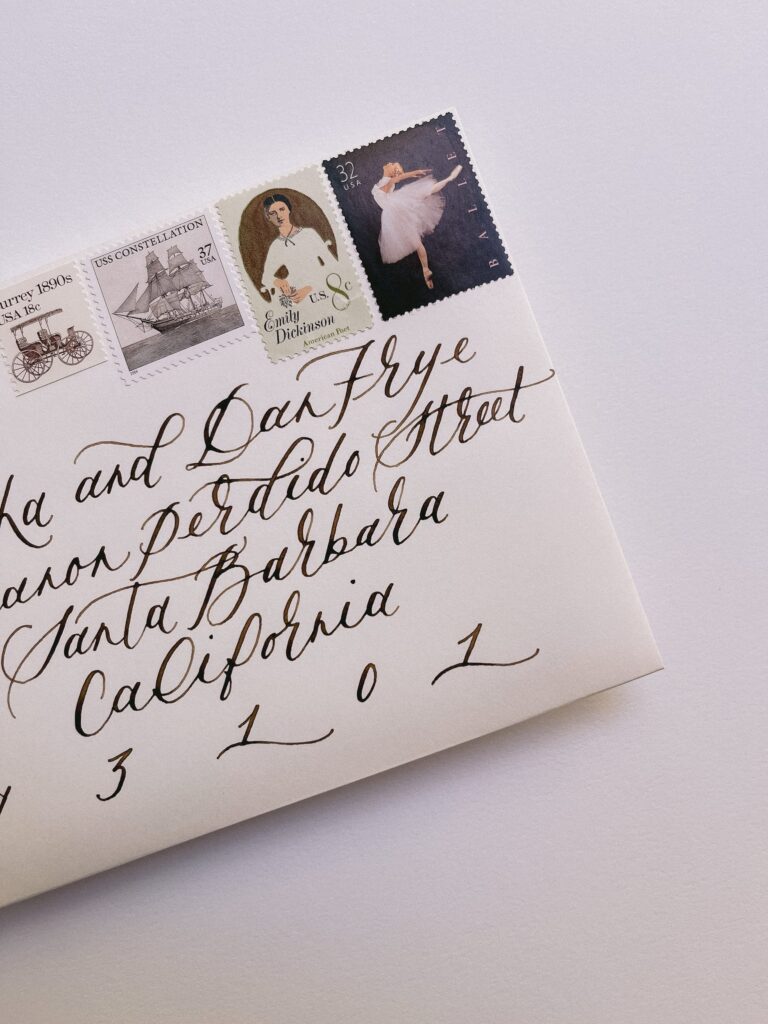 urrey 1890s
USA 18c
USS CONSTELLATION
37
USA
Emily
Dickinson
U.S. 8c
American Poet
32
USA
BALLET
ha and Dan Frye
anon Perdido Street
Santa Barbara
California
3 1 0 1